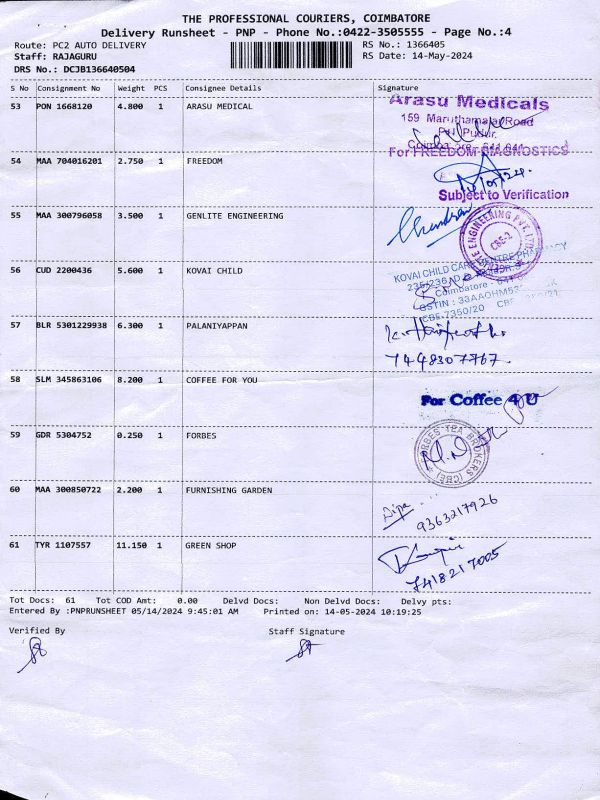 THE PROFESSIONAL COURIERS, COIMBATORE
Delivery Runsheet - PNP - Phone No.:0422-3505555 - Page No.:4
Route: PC2 AUTO DELIVERY
RS No.: 1366405
Staff: RAJAGURU
RS Date: 14-May-2024
DRS No.: DCJB136640504
S No Consignment No Weight PCS Consignee Details Signature
53 PON 1668120 4.800 1 ARASU MEDICAL
Arasu Medicals
159 Maruthamalai Road
54 MAA 704016201 2.750 1 FREEDOM
For FREEDOM DIAGNOSTICS
Subject to Verification
55 MAA 300796058 3.500 1 GENLITE ENGINEERING
Chandran
ENGINEERING PVT. LTD
CBE-2
56 CUD 2200436 5.600 1 KOVAI CHILD
KOVAI CHILD CARE CENTRE PHARMACY
235/236
Coimbatore - 641
GSTIN : 33AAOHM53
CBE-7350/20
57 BLR 5301229938 6.300 1 PALANIYAPPAN
7448307767.
58 SLM 345863106 8.200 1 COFFEE FOR YOU
For Coffee 4 U
59 GDR 5304752 0.250 1 FORBES
FORBES TEA BROKERS (CBE)
60 MAA 300850722 2.200 1 FURNISHING GARDEN
Dipa
9363217926
61 TYR 1107557 11.150 1 GREEN SHOP
7418217005
Tot Docs: 61 Tot COD Amt: 0.00 Delvd Docs: Non Delvd Docs: Delvy pts:
Entered By :PNPRUNSHEET 05/14/2024 9:45:01 AM Printed on: 14-05-2024 10:19:25
Verified By Staff Signature